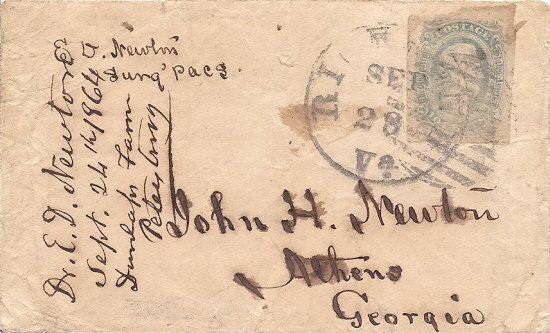 Dr. E. D. Newton
Sept. 24th 1864
Dunlaps Farm
Petersburg
Newton
Surg' PACS
POSTAGE
RI
SEP
28
Va
John H. Newton
Athens
Georgia